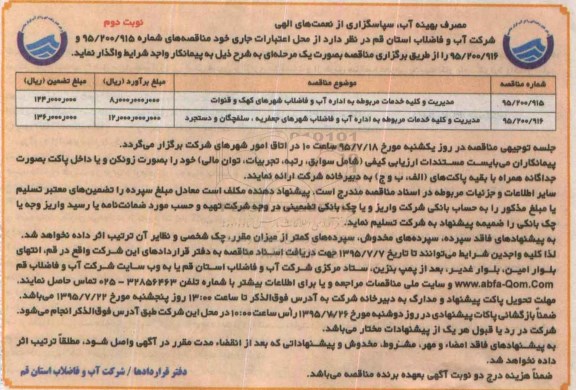 مصرف بهینه آب، سپاسگزاری از نعمت‌های الهی
نوبت دوم
شرکت آب و فاضلاب استان قم در نظر دارد از محل اعتبارات جاری خود مناقصه‌های شماره ۹۵/۲۰۰/۹۱۵ و
۹۵/۲۰۰/۹۱۶ را از طریق برگزاری مناقصه بصورت یک مرحله‌ای به شرح ذیل به پیمانکار واجد شرایط واگذار نماید.
شماره مناقصه موضوع مناقصه مبلغ برآورد (ریال) مبلغ تضمین (ریال)
۹۵/۲۰۰/۹۱۵ مدیریت و کلیه خدمات مربوطه به اداره آب و فاضلاب شهرهای کهک و قنوات
۹۵/۲۰۰/۹۱۶ مدیریت و کلیه خدمات مربوطه به اداره آب و فاضلاب شهرهای جعفریه ، سلفچگان و دستجرد
جلسه توجیهی مناقصه در روز یکشنبه مورخ ۹۵/۷/۱۸ ساعت ۱۰ در اتاق امور شهرهای شرکت برگزار می‌گردد.
پیمانکاران می‌بایست مستندات ارزیابی کیفی (شامل سوابق، رتبه، تجربیات، توان مالی) خود را بصورت زونکن و یا داخل پاکت بصورت
جداگانه همراه با بقیه پاکت‌های (الف، ب و ج) به دبیرخانه شرکت ارائه نمایند.
سایر اطلاعات و جزئیات مربوطه در اسناد مناقصه مندرج است. پیشنهاد دهنده مکلف است معادل مبلغ سپرده را تضمین‌های معتبر تسلیم
یا مبلغ مذکور را به حساب بانکی شرکت واریز و یا چک بانکی تضمینی در وجه شرکت تهیه و حسب مورد ضمانت‌نامه یا رسید واریز وجه یا
چک بانکی را ضمیمه پیشنهاد به شرکت تسلیم نماید.
به پیشنهادهای فاقد سپرده، سپرده‌های مخدوش، سپرده‌های کمتر از میزان مقرر، چک شخصی و نظایر آن ترتیب اثر داده نخواهد شد.
لذا کلیه واجدین شرایط می‌توانند تا تاریخ ۱۳۹۵/۷/۷ جهت دریافت اسناد مناقصه به دفتر قراردادهای این شرکت واقع در قم، انتهای
بلوار امین، بلوار غدیر، بعد از پمپ بنزین، ستاد مرکزی شرکت آب و فاضلاب استان قم یا به وب سایت شرکت آب و فاضلاب قم
www.abfa-Qom.Com و سایت ملی مناقصات مراجعه و یا برای اطلاعات بیشتر با شماره تلفن ۳۲۸۵۶۴۶۳ - ۰۲۵ تماس حاصل نمایند.
مهلت تحویل پاکت پیشنهاد و مدارک به دبیرخانه شرکت به آدرس فوق‌الذکر تا ساعت ۱۳:۰۰ روز پنجشنبه مورخ ۱۳۹۵/۷/۲۲ می‌باشد.
ضمناً بازگشائی پاکات پیشنهادی در روز دوشنبه مورخ ۱۳۹۵/۷/۲۶ رأس ساعت ۱۰:۰۰ در محل این شرکت طبق آدرس فوق‌الذکر انجام می‌شود.
شرکت در رد یا قبول هر یک از پیشنهادات مختار می‌باشد.
به پیشنهادهای فاقد امضاء و مهر، مشروط، مخدوش و پیشنهاداتی که بعد از انقضاء مدت مقرر در آگهی واصل شود، مطلقاً ترتیب اثر
داده نخواهد شد.
ضمناً هزینه درج دو نوبت آگهی بعهده برنده مناقصه می‌باشد.
دفتر قراردادها / شرکت آب و فاضلاب استان قم